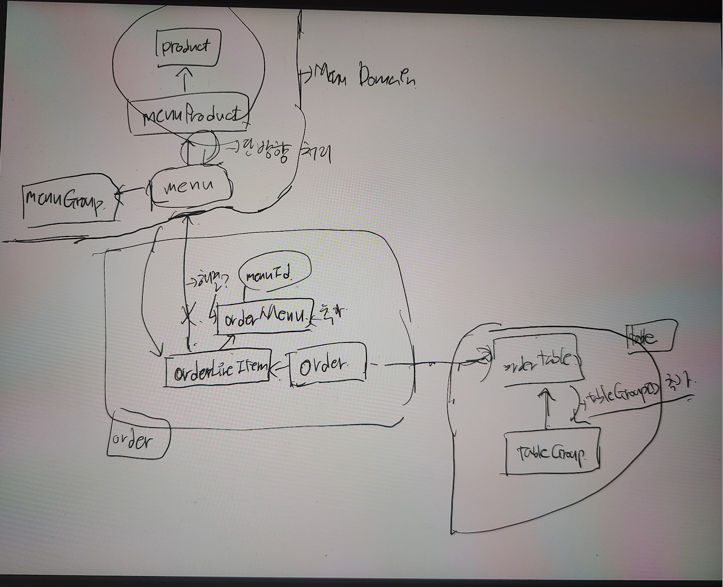 product
→Menu Domain
menuProduct
→단방향 처리
menu
menuGroup.
menuId
orderMenu.
추가
orderLineItem
order.
order
table
orderTable
tableGroupID 추가
tableGroup.